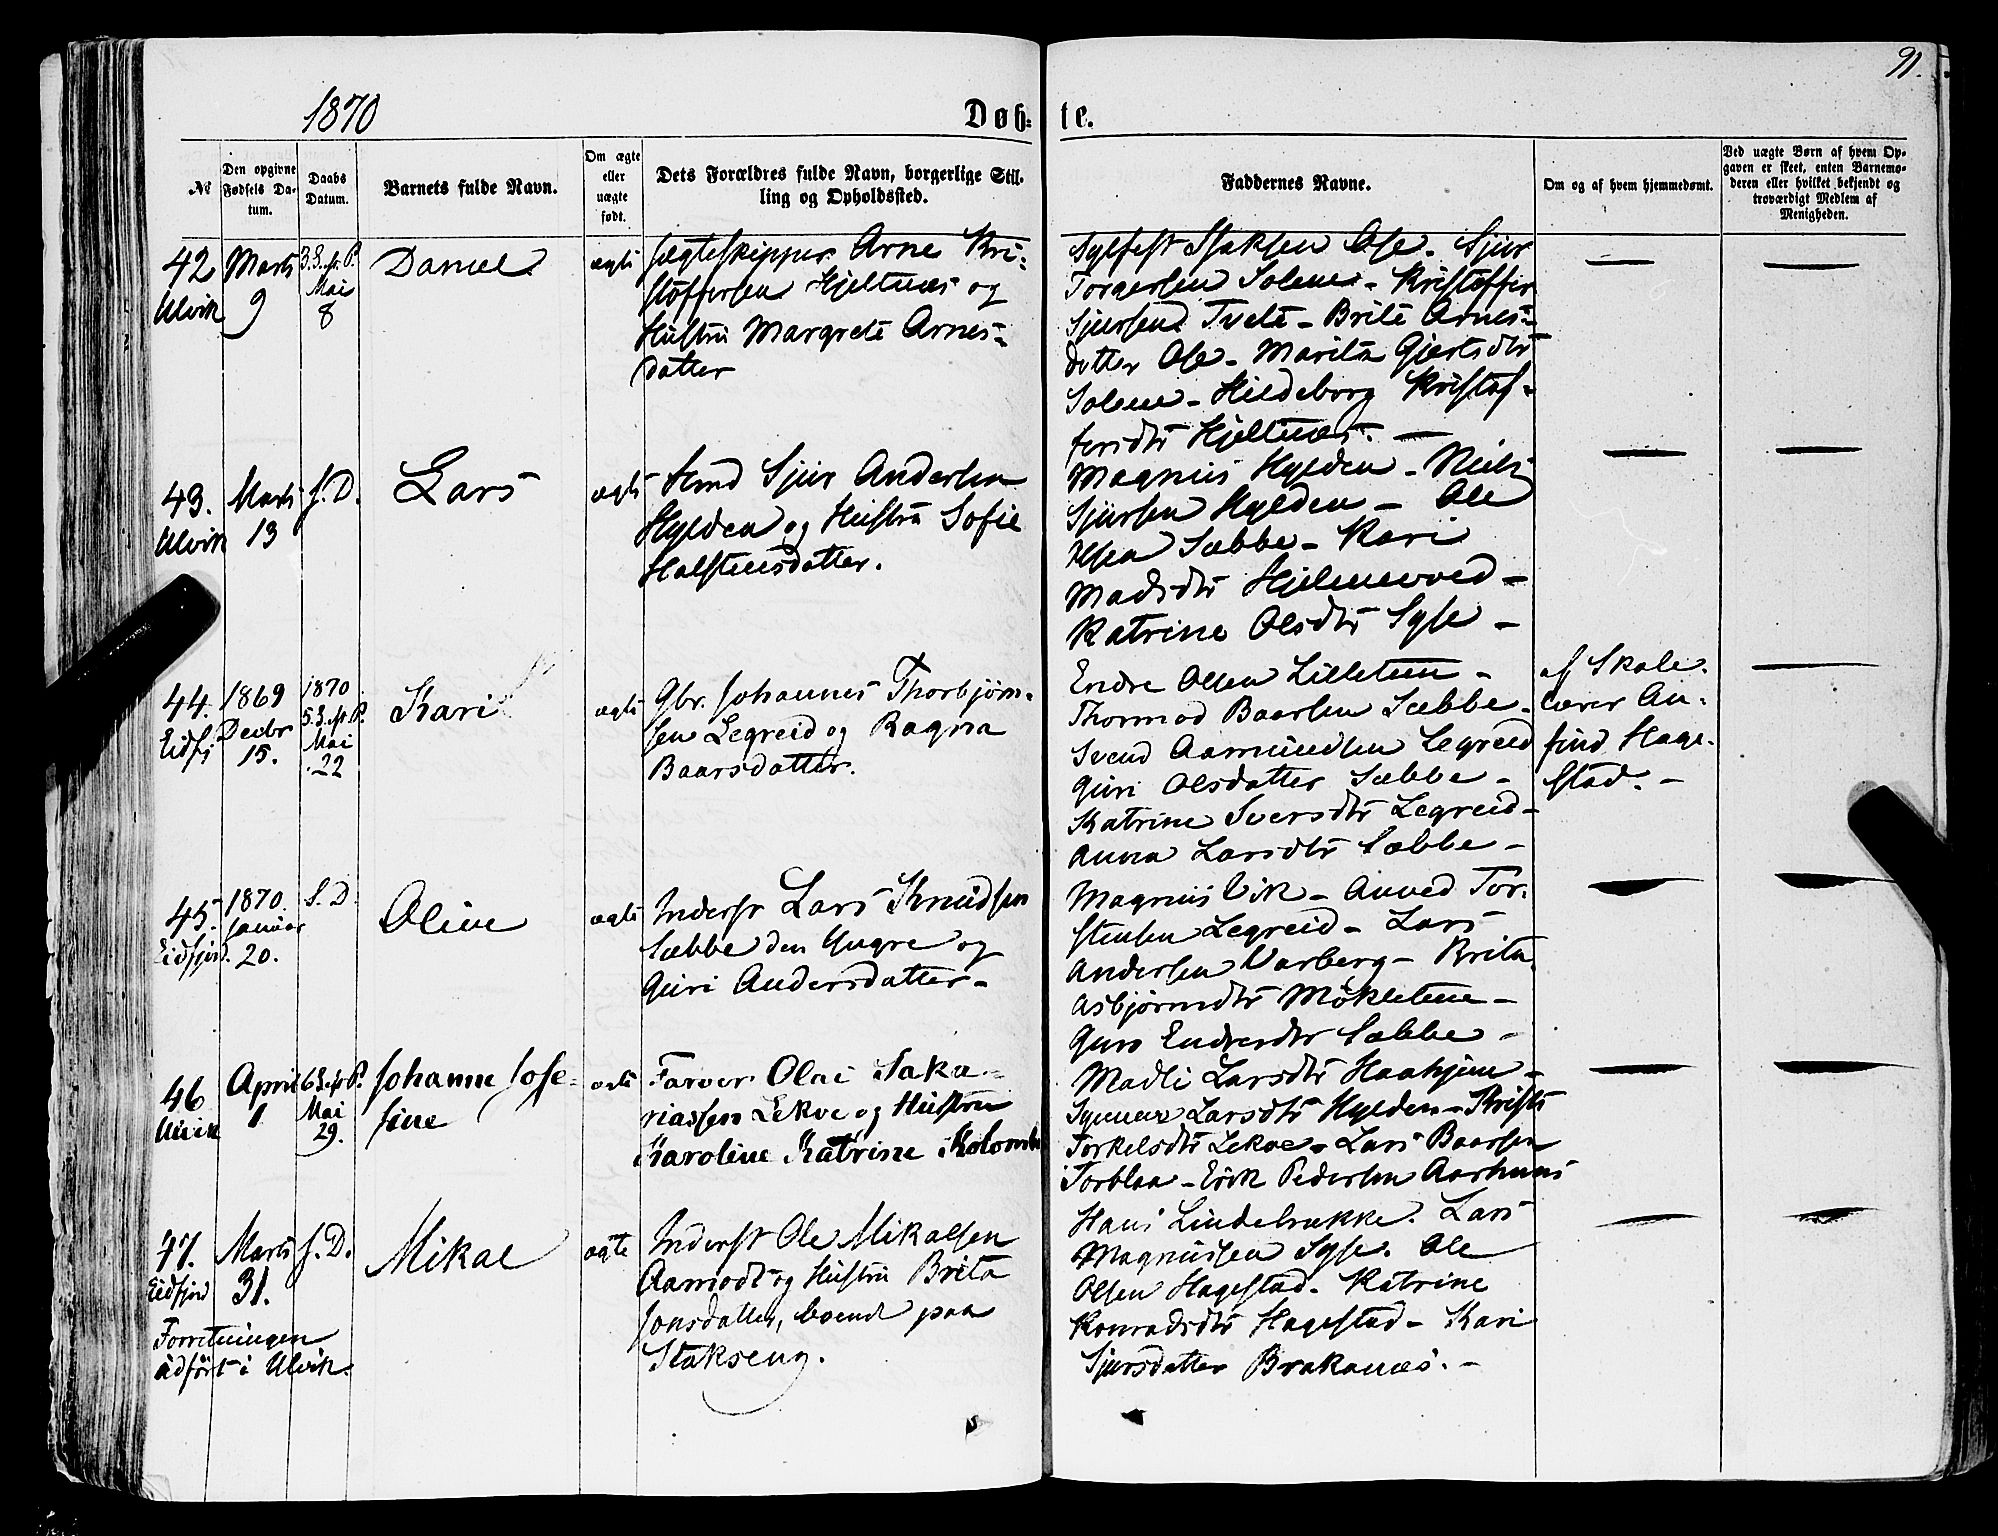 91.
1870
Døb-
te.
№
Den opgivne Fødsels Da-
tum.
Daabs Datum.
Barnets fulde Navn.
Om ægte eller uægte født.
Dets Forældres fulde Navn, borgerlige Stil-
ling og Opholdssted.
Faddernes Navne.
Om og af hvem hjemmedømt.
Ved uægte Børn af hvem Op-
gaven er skeet, enten Barnemo-
deren eller hvilket bekjendt og
troværdigt Medlem af
Menigheden.
42
Ulvik
Marts
9
3.S.e.P.
Mai
8
Daniel
ægte
Jægteskipper Arne Kri-
stoffersen Hjeltnæs og
Hustru Margrete Arnes-
datter
Sylfest Isaksen Ose. Sjur
Torgersen Solem - Kristoffer
Sjursen Tveit - Brite Arnes-
datter Ose - Marita Gjertsdtr
Hildeborg Kristof-
fersdtr Hjeltnæs. -
43.
Ulvik
Marts
13
s. D.
Lars
ægte
Hmd Sjur Andersen
Hylden og Hustru Sofie
Halstensdatter.
Magnus Hylden - Niels
Sjursen Hylden - Ole
Olsen Sæbbe - Kari
Madsdtr Hjelmevoed -
Katrine Olsdtr Syse -
44.
Eidfj
1869
Decbr
15.
1870
5.S.e.P.
Mai
22
Kari
ægte
Gbr. Johannes Thorbjørn-
sen Legreid og Ragna
Baarsdatter.
Endre Olsen Lilletun -
Thormod Baarsen Sæbbe -
Svend Aamundsen Legreid
Guri Olsdatter Sæbbe -
Katrine Iversdtr Legreid -
Anna Larsdtr Sæbbe -
af Skole-
lærer An-
find Hage-
stad. -
45.
Eidfjord.
1870.
Januar
20.
S. D.
Oline
ægte
Inderst Lars Knudsen
Sæbbe den Yngre og
Guri Andersdatter -
Magnus Vik - Anved Tor-
stensen Legreid - Lars
Andersen Varberg - Brita
Asbjørnsdtr Mökletun -
Guro Endresdtr Sæbbe -
46
Ulvik
April
1
6.S.e.P.
Mai
29.
Johanne Jose-
fine
ægte
Farver Olai Saka-
riassen Lekve og Hustru
Karoline Katrine
Madli Larsdtr Haahjem -
Synneva Larsdtr Hylden - Kristi
Torkelsdtr Lekve - Lars Baarsen
Torblaa - Erik Pedersen Aarhuus
47.
Eidfjord
Marts
31.
s. D.
Mikal
ægte
Inderst Ole Mikalsen
Aamodt og Hustru Brita
Jonsdatter, boende paa
Stakseng.
Hans Lindebrække. Lars
Magnussen Syse. Ole
Olsen Hagestad. Katrine
Konradsdtr Hagestad - Kari
Sjursdatter Brakanæs. -
Forretningen
udført i Ulvik.